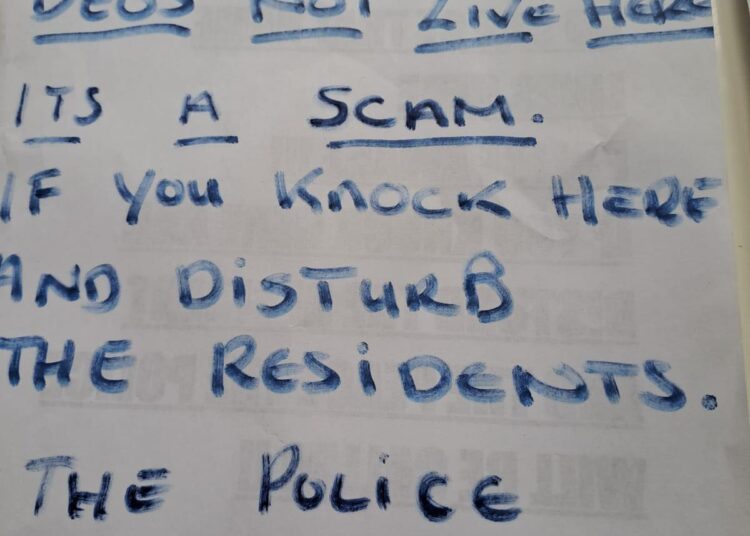 DEOS NOT LIVE HERE
ITS A SCAM.
IF YOU KNOCK HERE
AND DISTURB
THE RESIDENTS.
THE POLICE